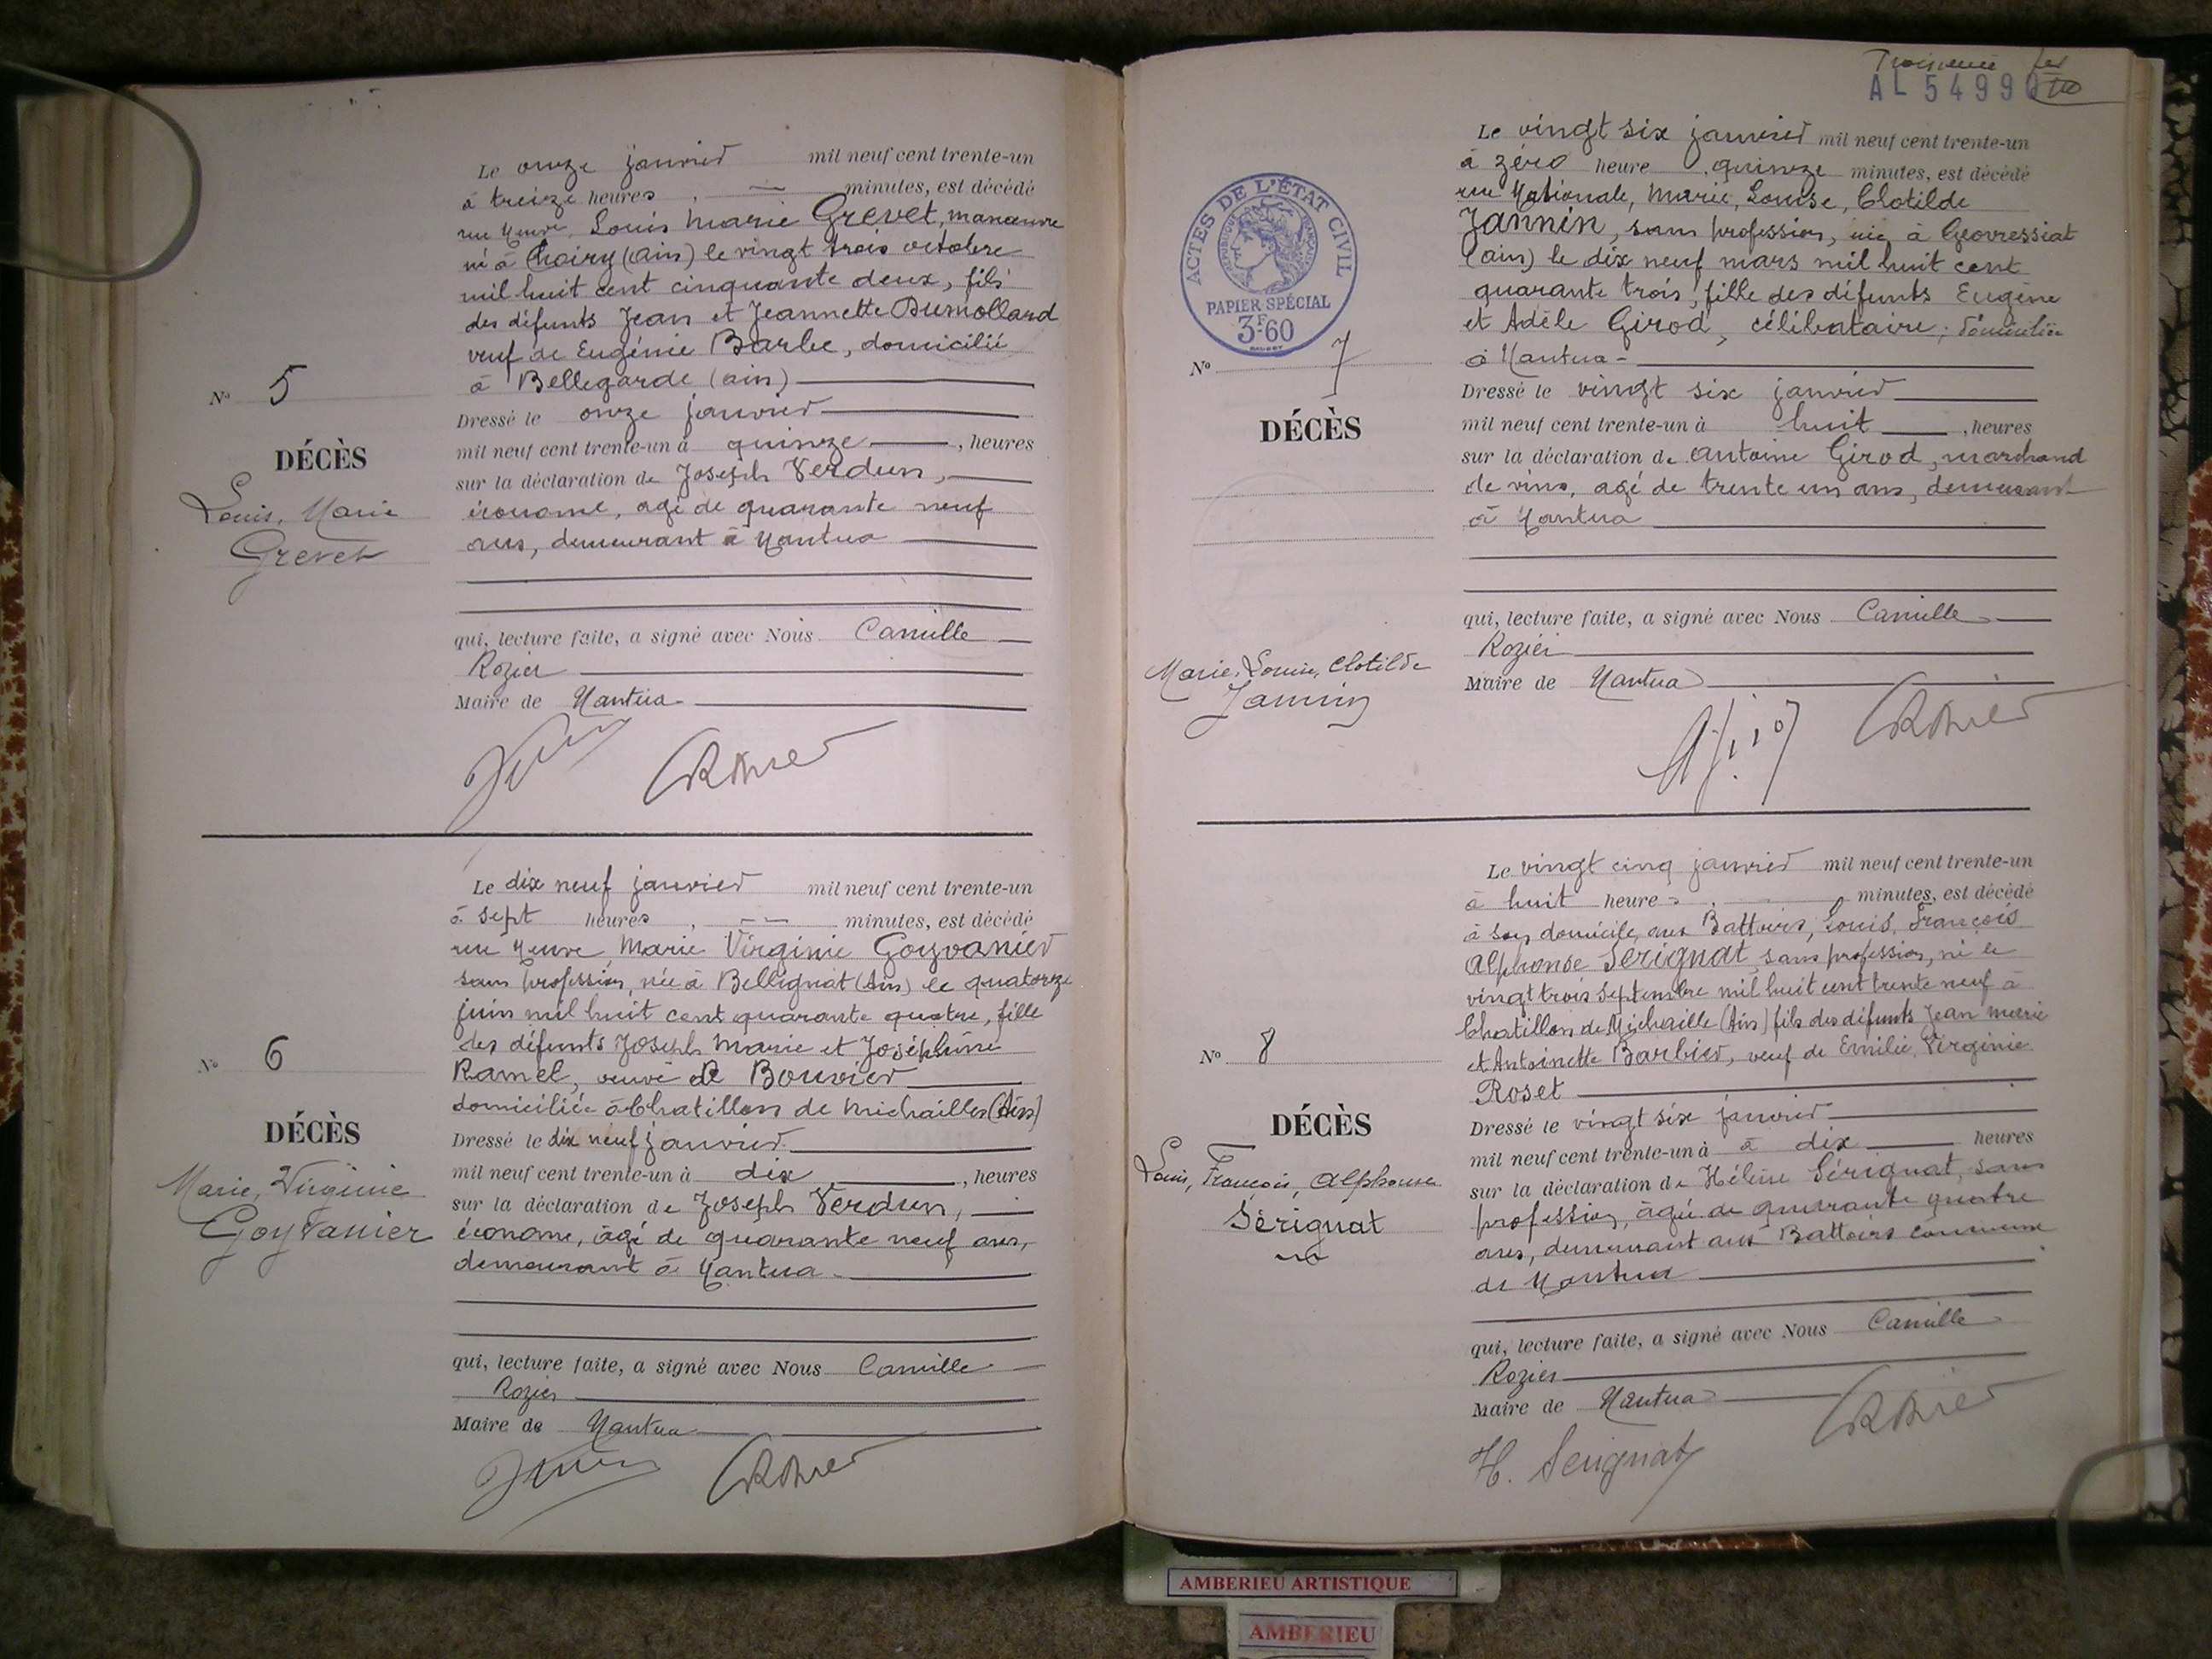 Le onze janvier mil neuf cent trente-un
à treize heures, — minutes, est décédé
rue Neuve, Louis Marie Grevet, manœuvre
né à (ain) le vingt trois octobre
mil huit cent cinquante deux, fils
des défunts Jean et Jeannette Dumollard
veuf de Eugénie Barbe, domicilié
à Bellegarde (ain)
N° 5
DÉCÈS
Louis, Marie
Grevet
Dressé le onze janvier
mil neuf cent trente-un à quinze, heures
sur la déclaration de Joseph Verdun,
économe, agé de quarante neuf
ans, demeurant à Nantua
qui, lecture faite, a signé avec Nous Camille
Rozier
Maire de Nantua
Le dix neuf janvier mil neuf cent trente-un
à sept heures, — minutes, est décédé
rue Neuve, Marie Virginie Goyvanier
sans profession, née à Bellignat (Ain) le quatorze
juin mil huit cent quarante quatre, fille
des défunts Joseph Marie et Joséphine
Ramel, veuve de Bouvier
domiciliée à Chatillon de Michailles (Ain)
N° 6
DÉCÈS
Marie, Virginie
Goyvanier
Dressé le dix neuf janvier
mil neuf cent trente-un à dix, heures
sur la déclaration de Joseph Verdun,
économe, âgé de quarante neuf ans,
demeurant à Nantua
qui, lecture faite, a signé avec Nous Camille
Rozier
Maire de Nantua
Troisième
AL 5499
ACTES DE L'ÉTAT CIVIL
RÉPUBLIQUE FRANÇAISE
PAPIER SPÉCIAL
3F60
Le vingt six janvier mil neuf cent trente-un
à zéro heure quinze minutes, est décédé
rue Nationale, Marie, Louise, Clotilde
Jannin, sans profession, née à Geovressiat
(ain) le dix neuf mars mil huit cent
quarante trois, fille des défunts Eugène
et Adèle Girod, célibataire, domiciliée
à Nantua
N° 7
DÉCÈS
Marie, Louise, Clotilde
Jannin
Dressé le vingt six janvier
mil neuf cent trente-un à huit, heures
sur la déclaration de Antoine Girod, marchand
de vins, agé de trente un ans, demeurant
à Nantua
qui, lecture faite, a signé avec Nous Camille
Rozier
Maire de Nantua
Le vingt cinq janvier mil neuf cent trente-un
à huit heures minutes, est décédé
à son domicile, aux Battoirs, Louis, François
Alphonse Sérignat, sans profession, né le
vingt trois Septembre mil huit cent trente neuf à
Chatillon de Michaille (Ain) fils des défunts Jean Marie
et Antoinette Barbier, veuf de Emilie, Virginie
Roset
N° 8
DÉCÈS
Louis, François, Alphonse
Sérignat
Dressé le vingt six janvier
mil neuf cent trente-un à à dix heures
sur la déclaration de Hélène Sérignat, sans
profession, âgée de quarante quatre
ans, demeurant aux Battoirs commune
de Nantua
qui, lecture faite, a signé avec Nous Camille
Rozier
Maire de Nantua
H. Serignat
AMBERIEU ARTISTIQUE
AMBERIEU